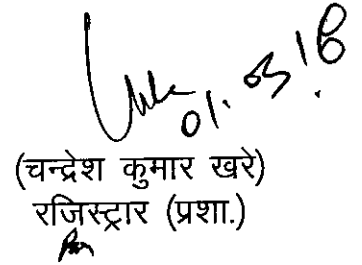 01.03.18
(चन्द्रेश कुमार खरे)
रजिस्ट्रार (प्रशा.)